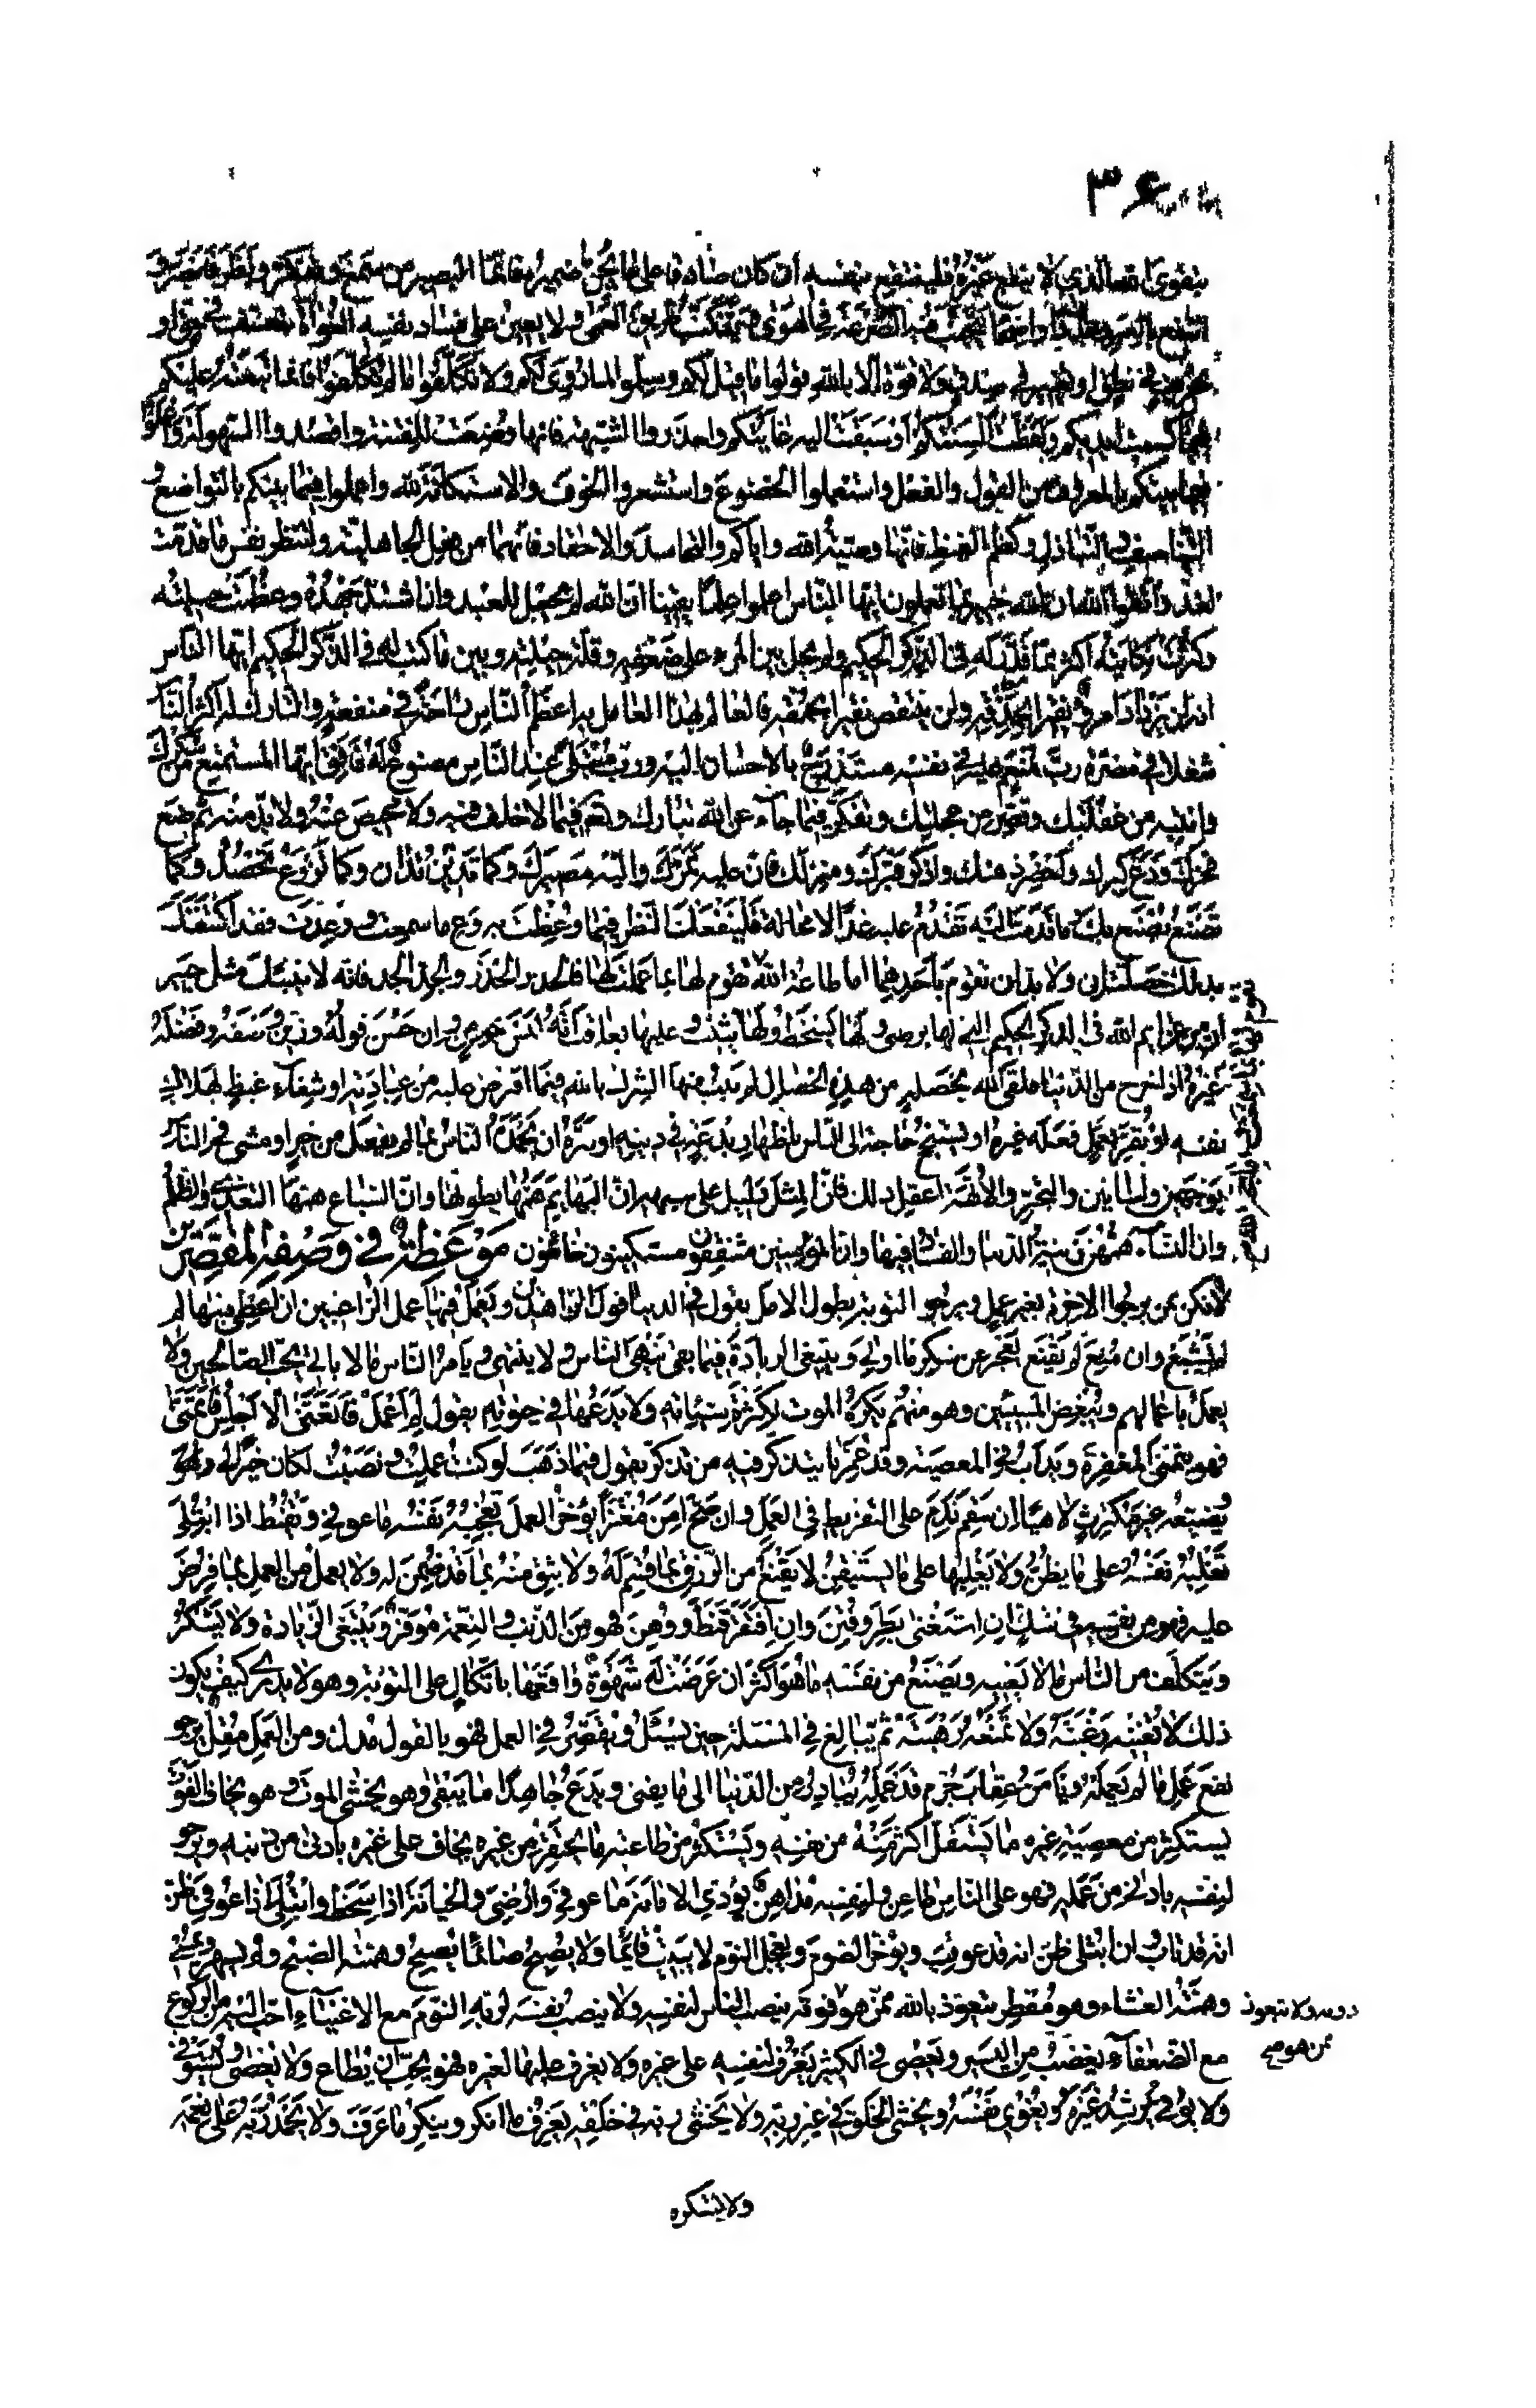 ٣٤
فانما البصير من سمع وتفكر
ولا يعين على فساد نفسه الغواة
ولا قوة الا بالله قولوا ما قيل لكم وسلموا لما روى لكم ولا تكلفوا ما لم تكلفوا فانما تبعته عليكم
فيما كسبت ايديكم ولفظت السنتكم او سبقت اليه غايتكم واحذروا الشبهة فانها وضعت للفتنة واقصدوا السهولة واعملوا
فيما بينكم بالمعروف من القول والفعل واستعملوا الخضوع واستشعروا الخوف والاستكانة لله واعملوا فيما بينكم بالتواضع و
التناصف والتباذل وكظم الغيظ فانها وصية الله واياكم والتحاسد والاحقاد فانهما من فعل الجاهلية ولتنظر نفس ما قدمت
لغد واتقوا الله ان الله خبير بما تعملون ايها الناس اعلموا علما يقينا ان الله لم يجعل للعبد وان اشتد جهده وعظمت حيلته
وكثرت نكايته اكثر مما قدر له في الذكر الحكيم ولم يحل بين المرء على ضعفه وقلة حيلته وبين ما كتب له في الذكر الحكيم ايها الناس
انه لن يزداد امرء نقيرا بحذقه ولن ينتقص نقيرا بحمقه فالعالم بهذا العامل به اعظم الناس راحة في منفعة والتارك له اكثر الناس
شغلا في مضرة رب منعم عليه في نفسه مستدرج بالاحسان اليه ورب مبتلى عند الناس مصنوع له فافق ايها المستمتع من سكرك
وانتبه من غفلتك وقصر من عجلتك وتفكر فيما جاء عن الله تبارك وتعالى فيما لا خلف فيه ولا محيص عنه ولا بد منه ثم ضع
فخرك ودع كبرك واحضر ذهنك واذكر قبرك ومنزلك فان عليه ممرك واليه مصيرك وكما تدين تدان وكما تزرع تحصد وكما
تصنع يصنع بك وما قدمت اليه تقدم عليه غدا لا محالة فلينفعك النظر فيما وعظت به وع ما سمعت ووعدت فقد اكتنفك
بذلك خصلتان ولا بد ان تقوم باحدهما اما طاعة الله تقوم لها بما علمت فالحذر الحذر والجد الجد فانه لا ينبئك مثل خبير
ان من عزائم الله في الذكر الحكيم التي لها يرضى ولها يسخط ولها يثيب وعليها يعاقب انه ليس بمؤمن وان حسن قوله وزين وصفه وفضله
غيره اذا خرج من الدنيا فلقى الله بخصلة من هذه الخصال لم يتب منها الشرك بالله فيما افترض عليه من عبادته او شفاء غيظ بهلاك
نفسه او يقر بعمل فعله غيره او يستنجح حاجة الى الناس باظهار بدعة في دينه او سره ان يحمده الناس بما لم يفعل من خير او مشى في الناس
بوجهين ولسانين والتجبر والابهة اعقل ذلك فان المثل دليل على شبهه ان البهائم همها بطونها وان السباع همها التعدي والظلم
وان النساء همهن زينة الدنيا والفساد فيها وان المؤمنين مشفقون مستكينون خائفون موعظة في وصفه المقصرين
لا تكن ممن يرجوا الاخرة بغير عمل ويرجو التوبة بطول الامل يقول في الدنيا قول الزاهدين ويعمل فيها عمل الراغبين ان اعطى منها لم
يشبع وان منع لم يقنع يعجز عن شكر ما اوتى ويبتغى الزيادة فيما بقى ينهى الناس ولا ينتهى ويامر الناس ما لا ياتى يحب الصالحين ولا
يعمل باعمالهم ويبغض المسيئين وهو منهم يكره الموت لكثرة سيئاته ولا يدعها في حيوته يقول كم اعمل فاتعنى الا اجلس فاتمنى
فهو يتمنى المغفرة ويداب في المعصية وقد عمر ما يتذكر فيه من تذكر يقول فيما ذهب لو كنت عملت ونصبت لكان خيرا لي و
يضيعه غير مكترث لاهيا ان سقم ندم على التفريط في العمل وان صح امن مغترا يؤخر العمل تعجبه نفسه ما عوفى ويقنط اذا ابتلى
تغلبه نفسه على ما يظن ولا يغلبها على ما يستيقن لا يقنع من الرزق بما قسم له ولا يثق منه بما قد ضمن له ولا يعمل من العمل بما فرض
عليه فهو من نفسه في شك ان استغنى بطر وفتن وان افتقر قنط ووهن فهو من الذنب والنعمة موقر ويبتغى الزيادة ولا يشكر
ويتكلف من الناس ما لا يعنيه ويصنع من نفسه ما هو اكثر ان عرضت له شهوة واقعها باتكال على التوبة وهو لا يدرى كيف يكون
ذلك لا تغنيه رغبته ولا تمنعه رهبته ثم يبالغ في المسئلة حين يسئل ويقصر في العمل فهو بالقول مدل ومن العمل مقل يرجو
نفع عمل ما لم يعمله ويامن عقاب جرم قد عمله يبادر من الدنيا الى ما يفنى ويدع جاهدا ما يبقى وهو يخشى الموت وهو يخاف الفوت
يستكثر من معصية غيره ما يستقل اكثر منه من نفسه ويستكثر من طاعته ما يحتقره من غيره يخاف على غيره بادنى من ذنبه ويرجو
لنفسه بادنى من عمله فهو على الناس طاعن ولنفسه مداهن يؤدي الامانة ما عوفى وارضى والخيانة اذا سخط وابتلى اذا عوفى ظن
انه قد تاب وان ابتلى ظن انه قد عوقب ويؤخر الصوم ويعجل النوم لا يبيت قائما ولا يصبح صائما يصبح وهمته الصبح ولم يسهر ويمسى
وهمته العشاء وهو مفطر يتعوذ بالله ممن هو فوقه ينصب الناس لنفسه ولا ينصب نفسه لربه النوم مع الاغنياء احب اليه من الركوع
دونه ولا يتعوذ
ممن هو
مع الضعفاء يغضب من اليسير ويعصى في الكثير يعرف لنفسه على غيره ولا يعرف عليها لغيره فهو يحب ان يطاع ولا يعصى ويستوفى
ولا يوفى يرشد غيره ويغوى نفسه ويخشى الخلق في غير ربه ولا يخشى ربه في خلقه يعرف ما انكر وينكر ما عرف ولا يحمد ربه على نعمه
ولا يشكره